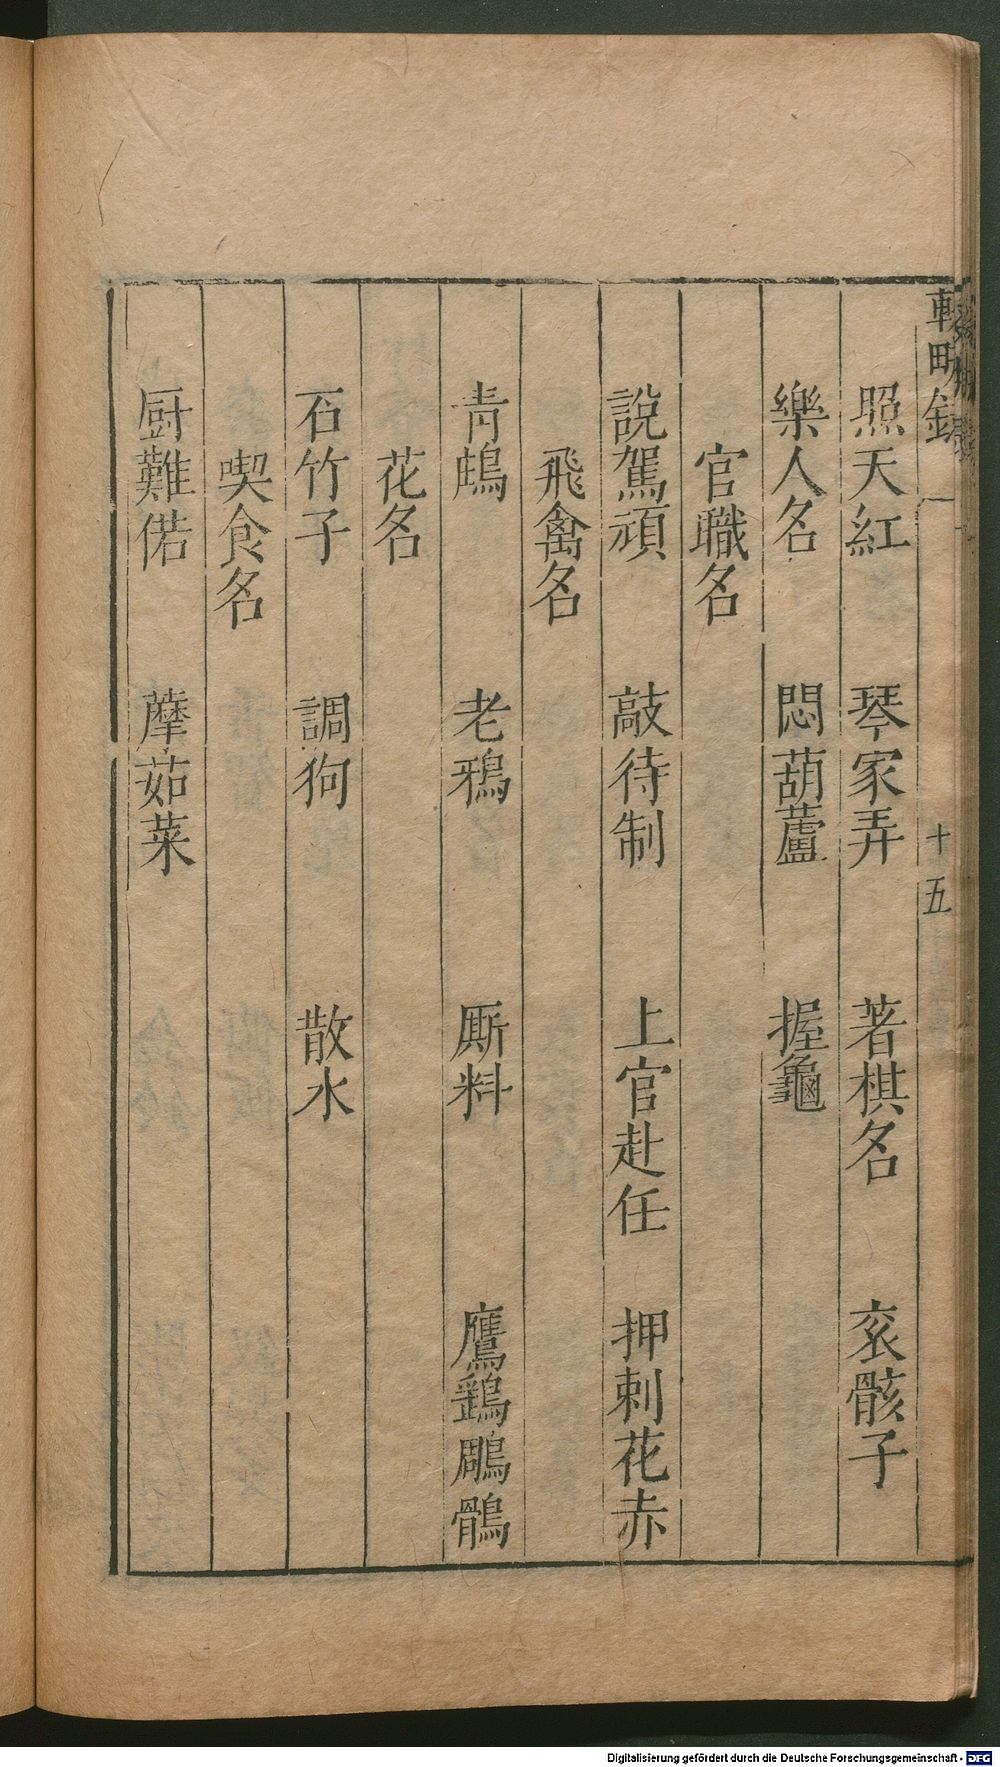 輟畊錄
十五
照天紅　琴家弄　著棋名　衮骰子
樂人名　悶葫蘆　握龜
官職名
說駕頑　敲待制　上官赴任　押刺花赤
飛禽名
青鵡　老鴉　厮料　鷹鷂鵰鶻
花名
石竹子　調狗　散水
喫食名
厨難偌　蘑菇菜
Digitalisierung gefördert durch die Deutsche Forschungsgemeinschaft - DFG